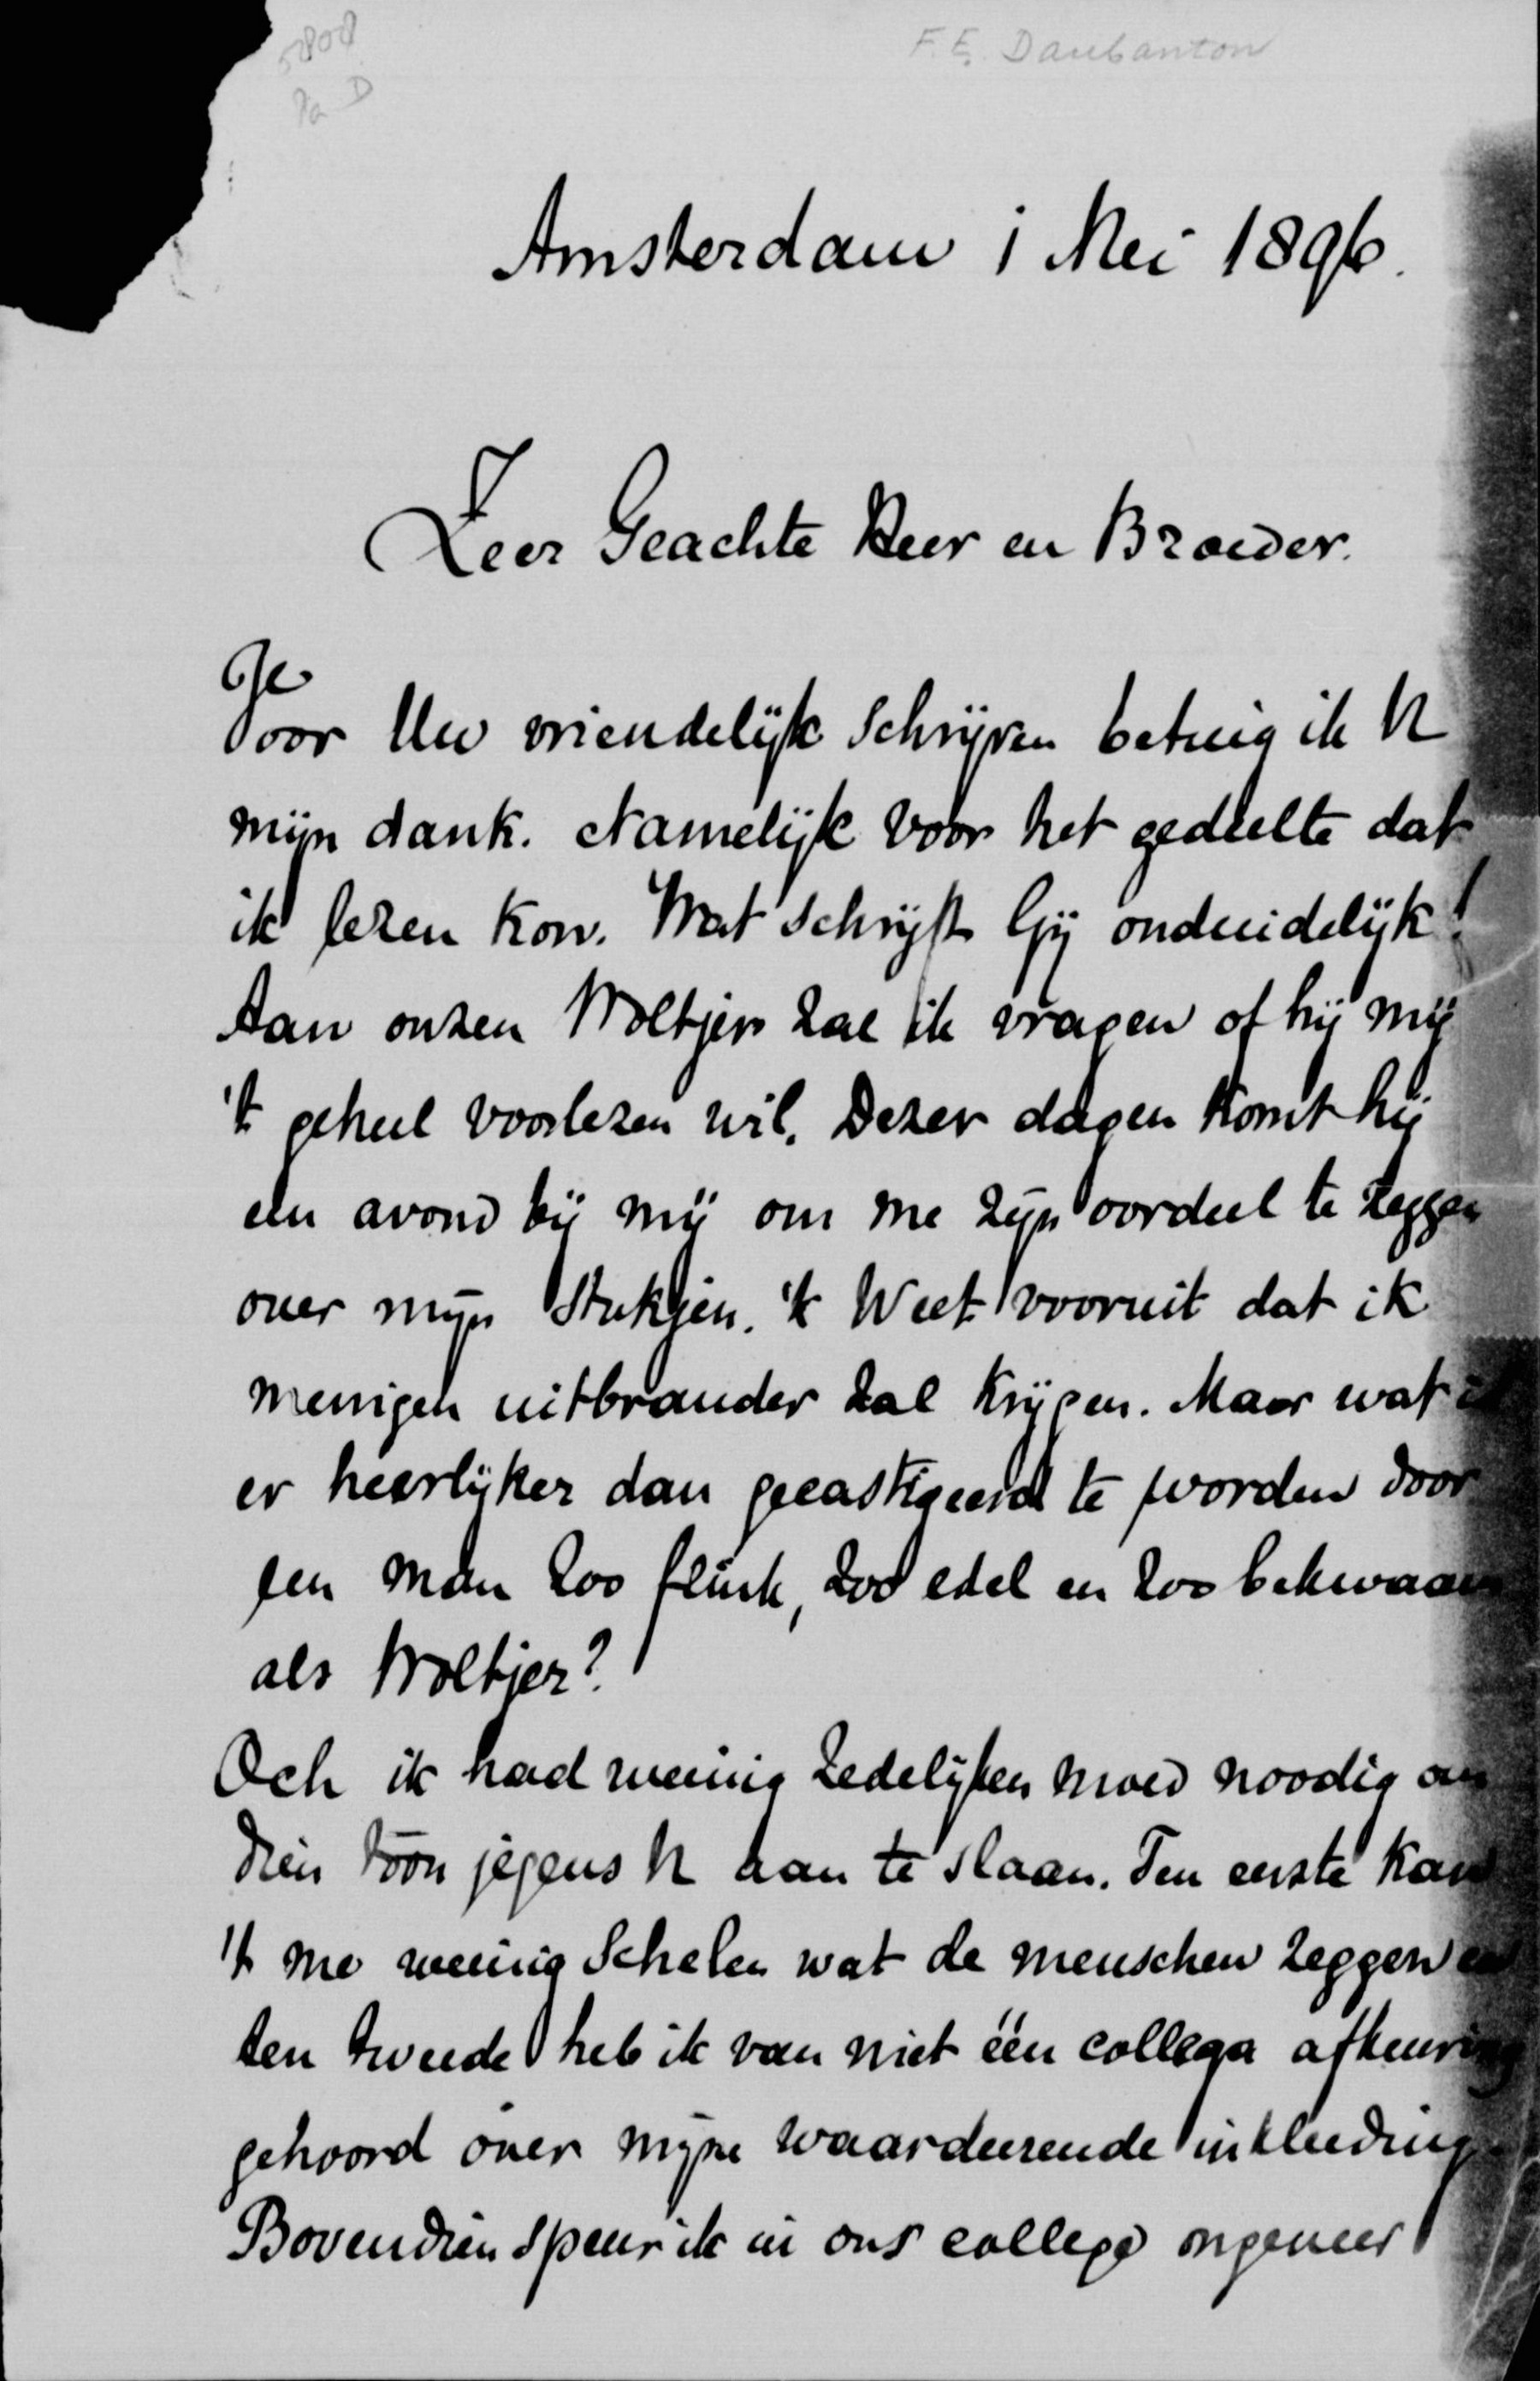 5808
F. E. Daubanton
Amsterdam 1 Mei 1896.
Zeer Geachte Heer en Broeder.
Voor Uw vriendelijk schrijven betuig ik U
mijn dank. Namelijk voor het gedeelte dat
ik lezen kon. Wat schrijft Gij onduidelijk!
Aan onzen Woltjer zal ik vragen of hij mij
't geheel voorlezen wil. Dezer dagen komt hij
een avond bij mij om me zijn oordeel te zeggen
over mijn stukjen. 'k Weet vooruit dat ik
menigen uitbrander zal krijgen. Maar wat is
er heerlijker dan gecastigeerd te worden door
een man zoo flink, zoo edel en zoo bekwaam
als Woltjer?
Och ik had weinig zedelijken moed noodig om
dien toon jegens U aan te slaan. Ten eerste kan
't me weinig schelen wat de menschen zeggen en
ten tweede heb ik van niet één collega afkeuring
gehoord over mijne waardeerende inkleeding.
Bovendien speur ik in ons college ongeveer